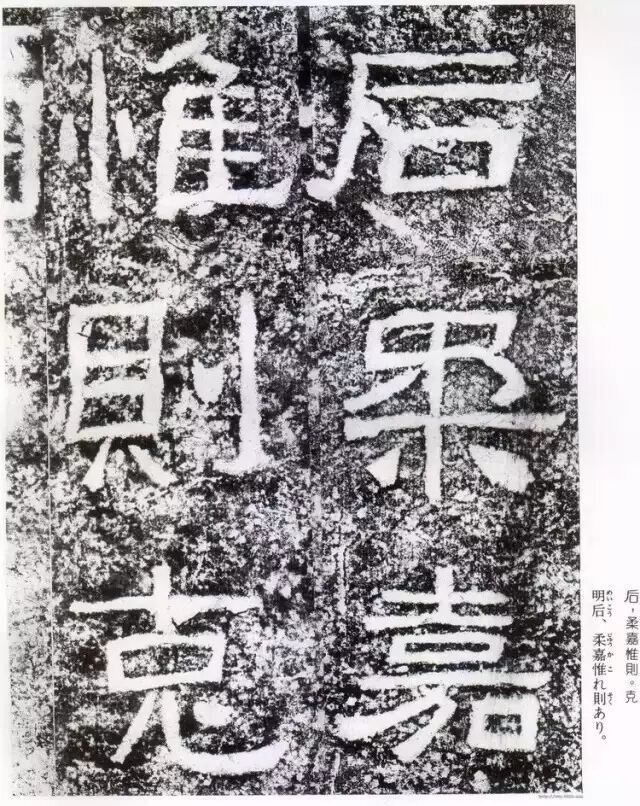 后柔嘉
惟則克
后，柔嘉惟則。克
明后、柔嘉惟れ則あり。